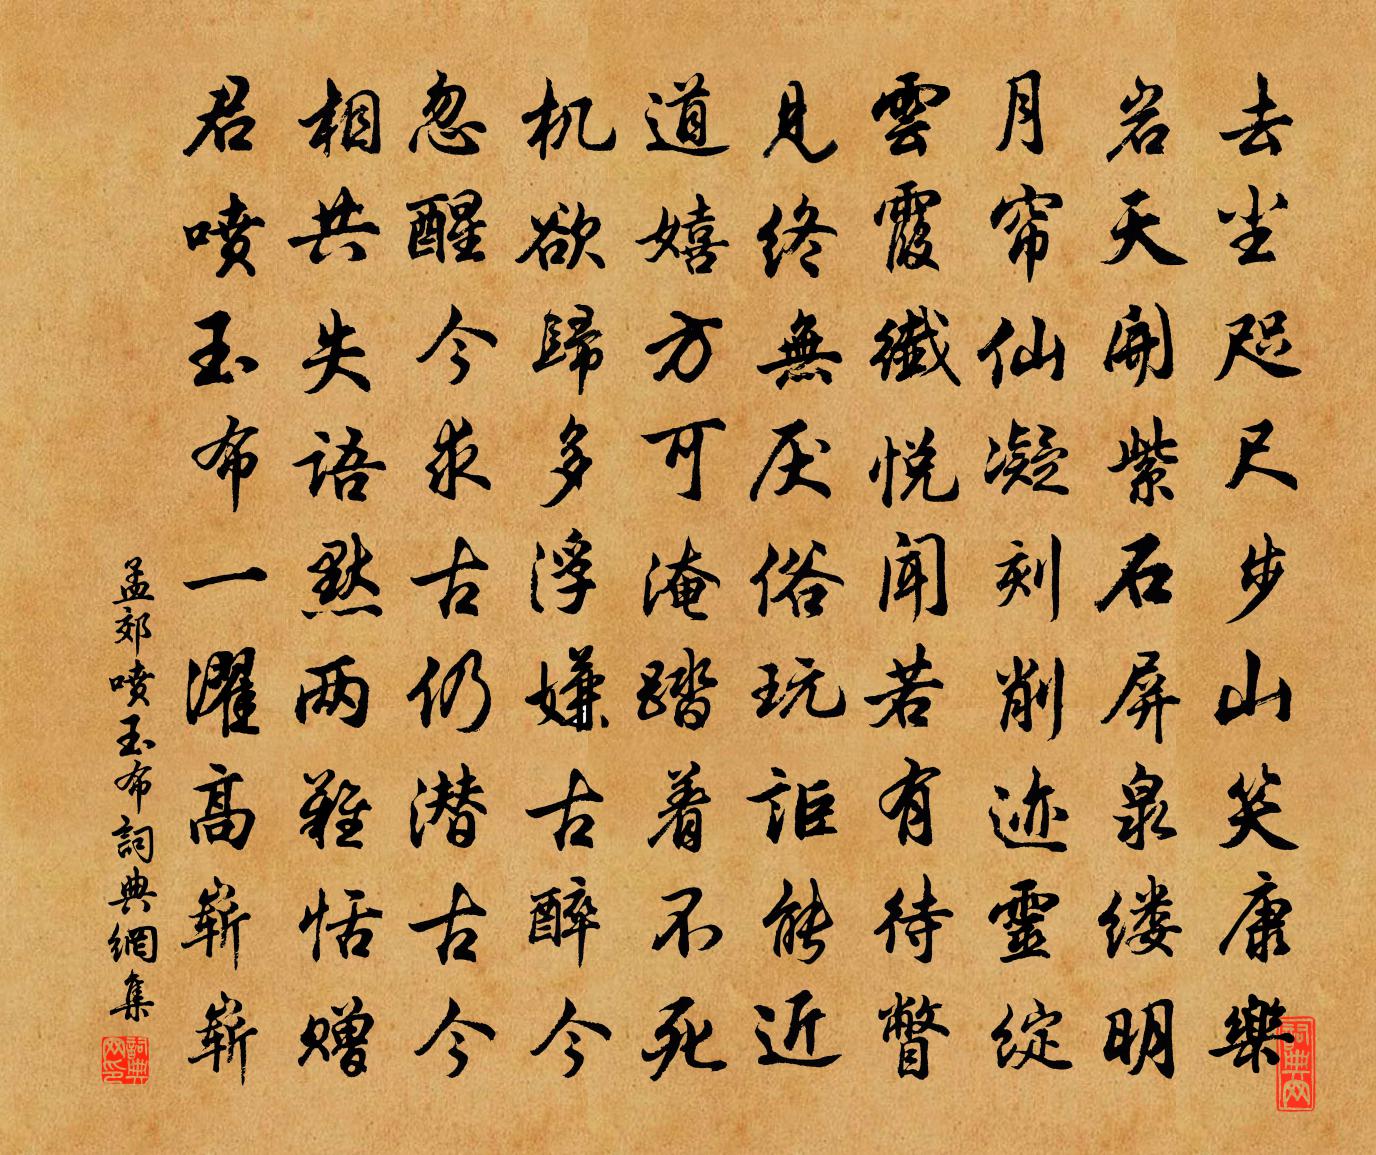 去尘咫尺步山笑康樂
岩天開紫石屏泉缕明
月帘仙凝刻削迹靈綻
雲霞纖悦闻若有待瞥
見終無厌俗玩詎能近
道嬉方可淹踏着不死
机欲歸多浮嫌古醉今
忽醒今求古仍潜古今
相共失語黙两難恬赠
君喷玉布一濯高崭崭
孟郊喷玉布詞典網集
詞典网
詞典网印